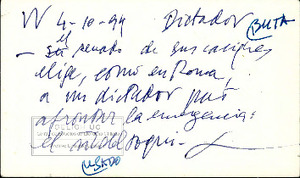 VV 4-10-94 Dictador BUTA
- el senado de sus caciques
elige, como en Roma,
a un dictador para
afrontar la emergencia:
el
USADO